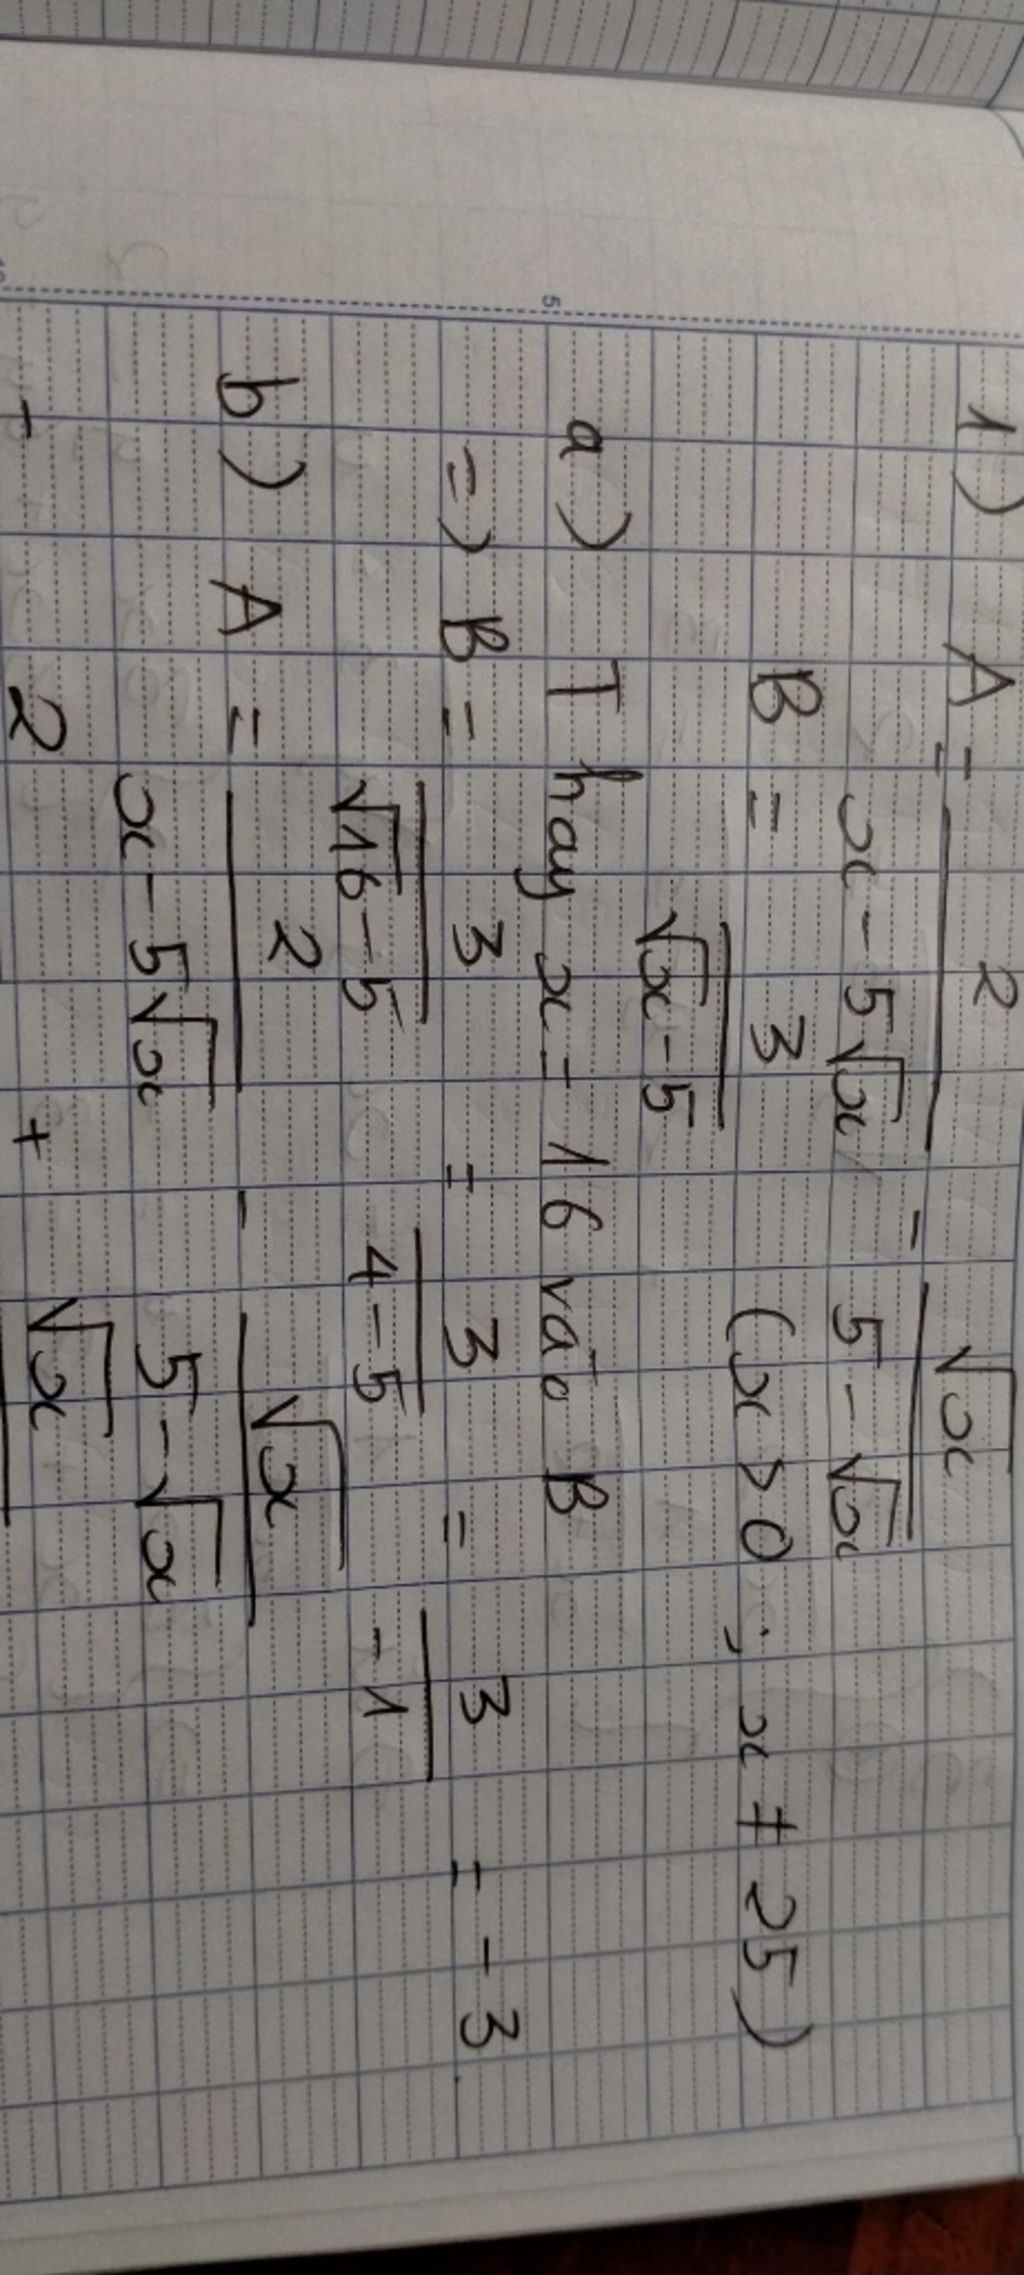 1) A = 2/(x - 5√x) - √x/(5 - √x)
B = 3/(√x - 5) (x > 0 ; x ≠ 25)
a) Thay x = 16 vào B
=> B = 3/(√16 - 5) = 3/(4 - 5) = 3/-1 = -3
b) A = 2/(x - 5√x) - √x/(5 - √x)
= 2 + √x